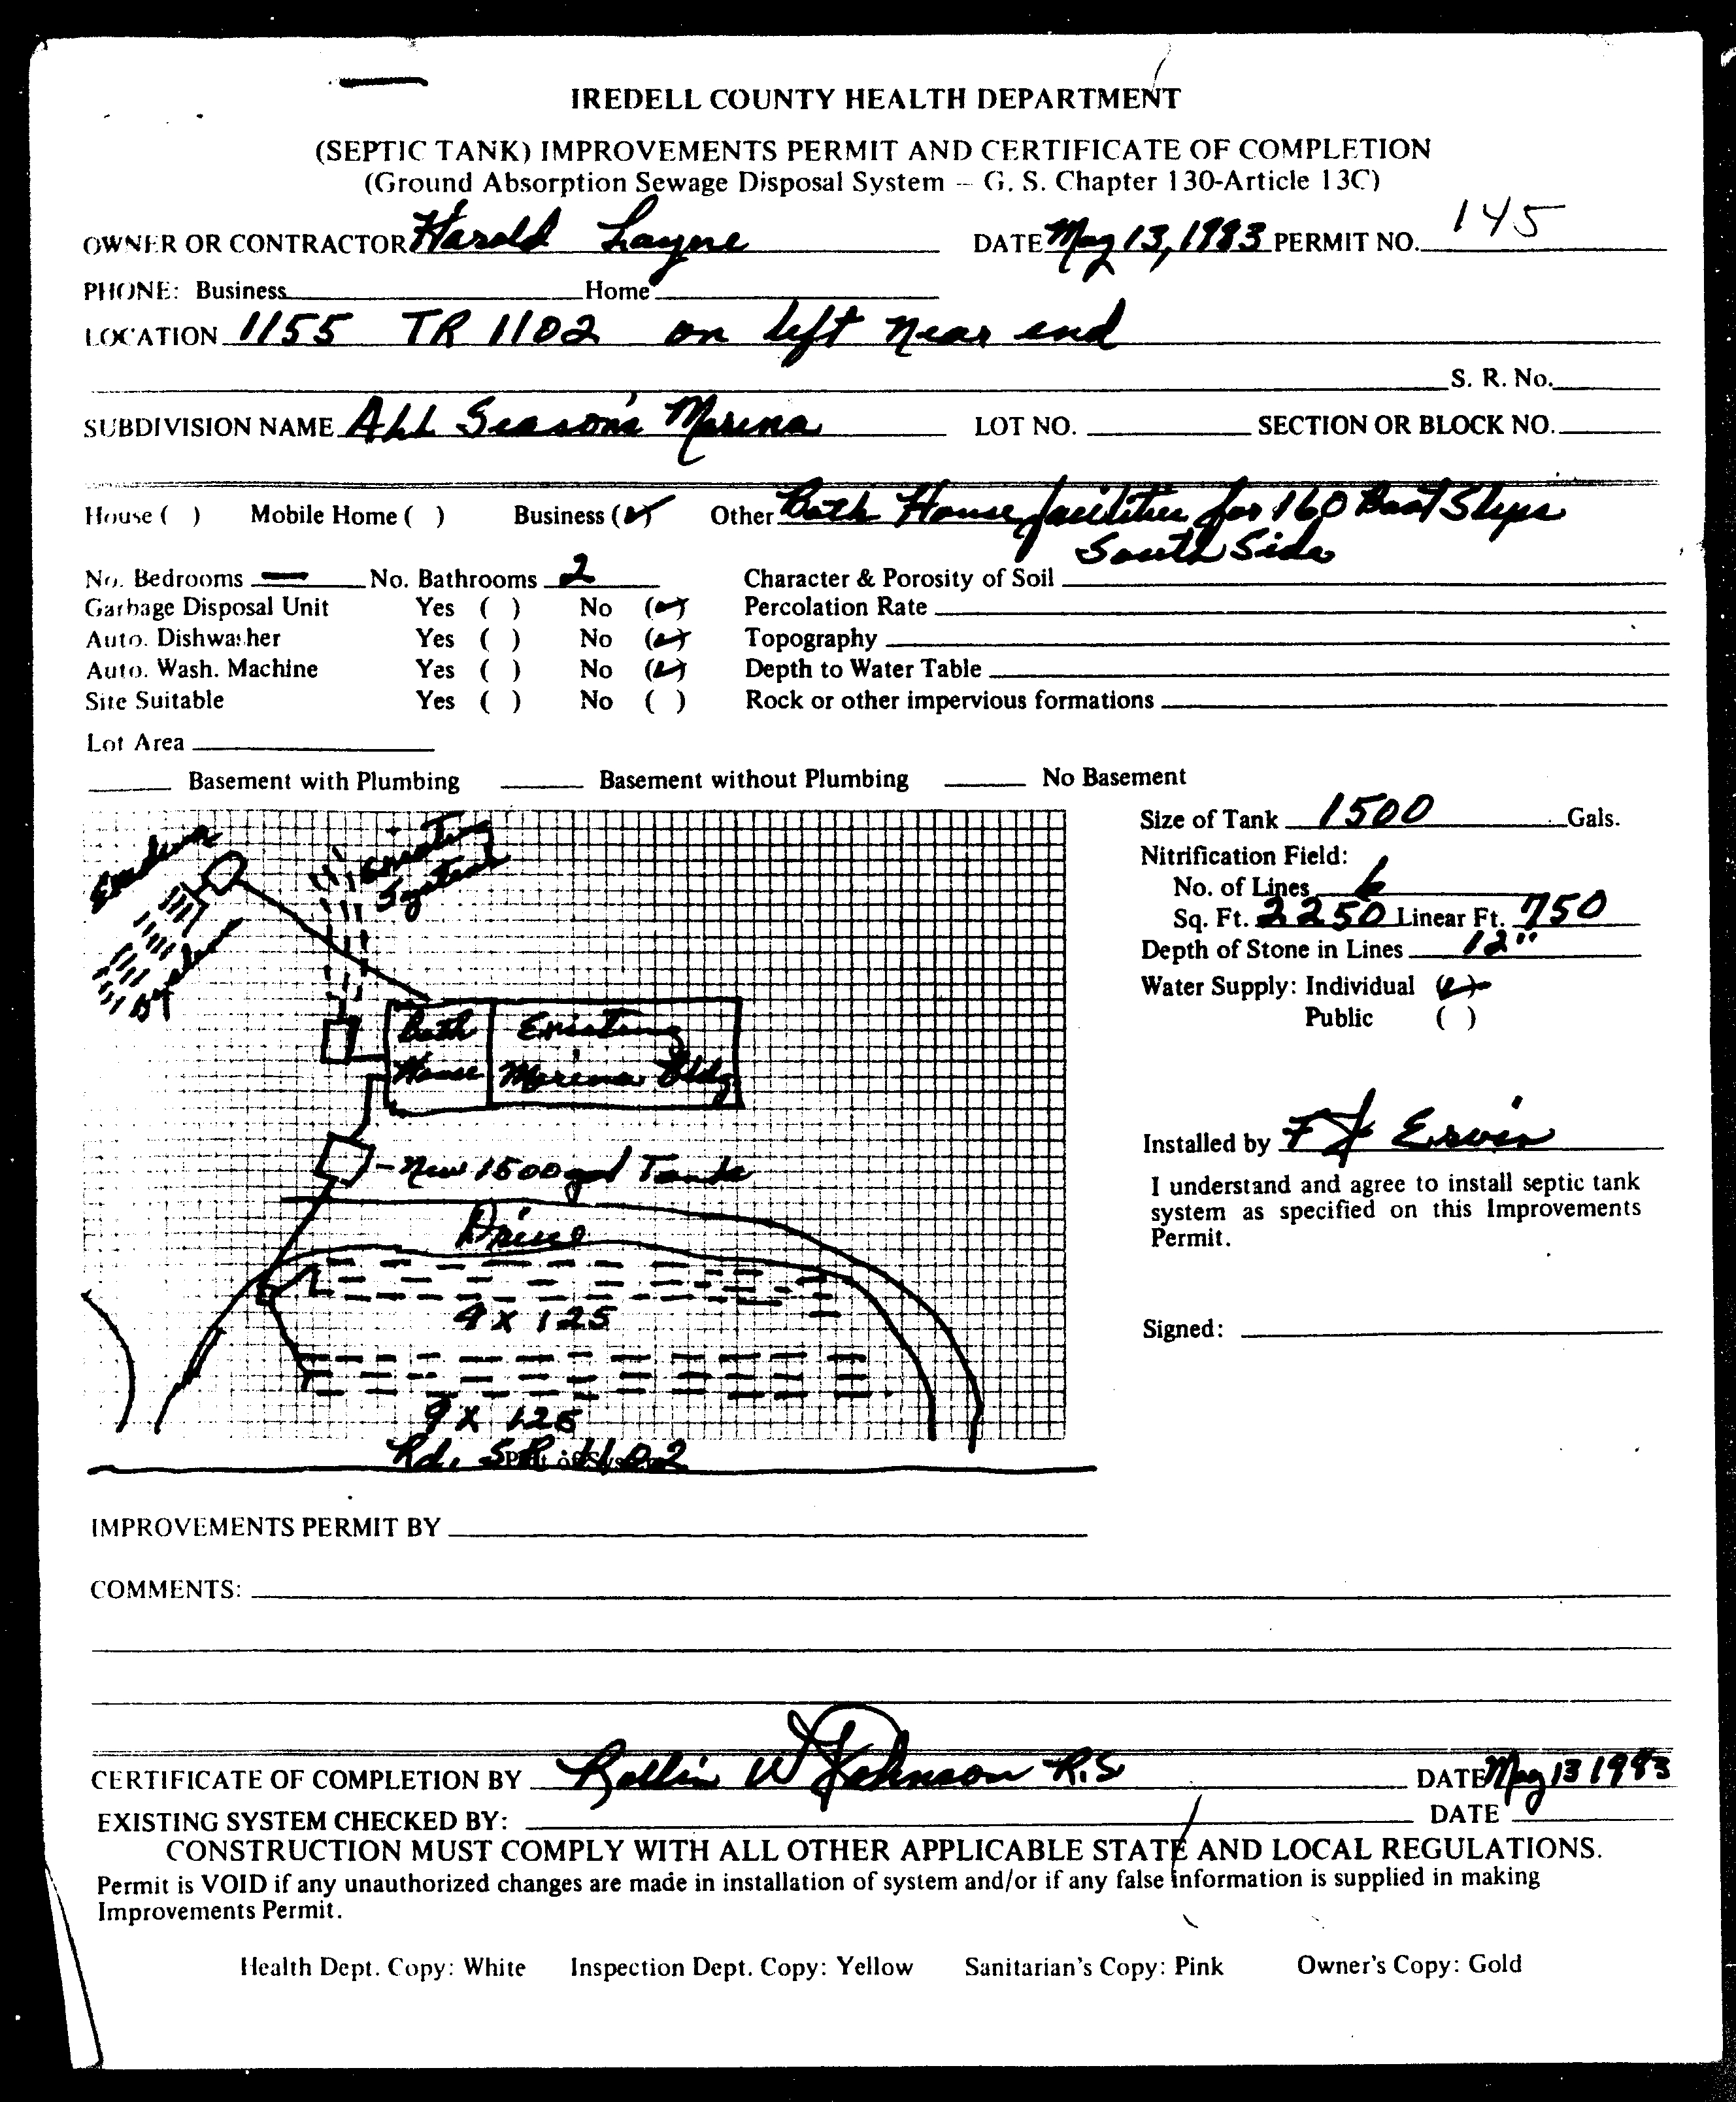 IREDELL COUNTY HEALTH DEPARTMENT
(SEPTIC TANK) IMPROVEMENTS PERMIT AND CERTIFICATE OF COMPLETION
(Ground Absorption Sewage Disposal System – G. S. Chapter 130-Article 13C)
OWNER OR CONTRACTOR Harold Layne DATE May 13, 1983 PERMIT NO. 145
PHONE: Business Home
LOCATION 1155 TR 1102 on left near end
S. R. No.
SUBDIVISION NAME All Season's Marina LOT NO. SECTION OR BLOCK NO.
House ( ) Mobile Home ( ) Business (✓) Other Bath House facilities for 160 Boat Slips
South Side
No. Bedrooms — No. Bathrooms 2 Character & Porosity of Soil
Garbage Disposal Unit Yes ( ) No (✓) Percolation Rate
Auto. Dishwasher Yes ( ) No (✓) Topography
Auto. Wash. Machine Yes ( ) No (✓) Depth to Water Table
Site Suitable Yes ( ) No ( ) Rock or other impervious formations
Lot Area
Basement with Plumbing Basement without Plumbing No Basement
Size of Tank 1500 Gals.
Nitrification Field:
No. of Lines 6
Sq. Ft. 2250 Linear Ft. 750
Depth of Stone in Lines 12"
Water Supply: Individual (✓)
Public ( )
Existing
System
Bath House
Existing Marina Bldg
- New 1500 gal Tank
Drive
9 X 125
9 X 125
Rd. SR 1102
Installed by F J Ervin
I understand and agree to install septic tank
system as specified on this Improvements
Permit.
Signed:
IMPROVEMENTS PERMIT BY
COMMENTS:
CERTIFICATE OF COMPLETION BY Rollin W Johnson R.S DATE May 13 1983
EXISTING SYSTEM CHECKED BY: DATE
CONSTRUCTION MUST COMPLY WITH ALL OTHER APPLICABLE STATE AND LOCAL REGULATIONS.
Permit is VOID if any unauthorized changes are made in installation of system and/or if any false information is supplied in making
Improvements Permit.
Health Dept. Copy: White Inspection Dept. Copy: Yellow Sanitarian's Copy: Pink Owner's Copy: Gold